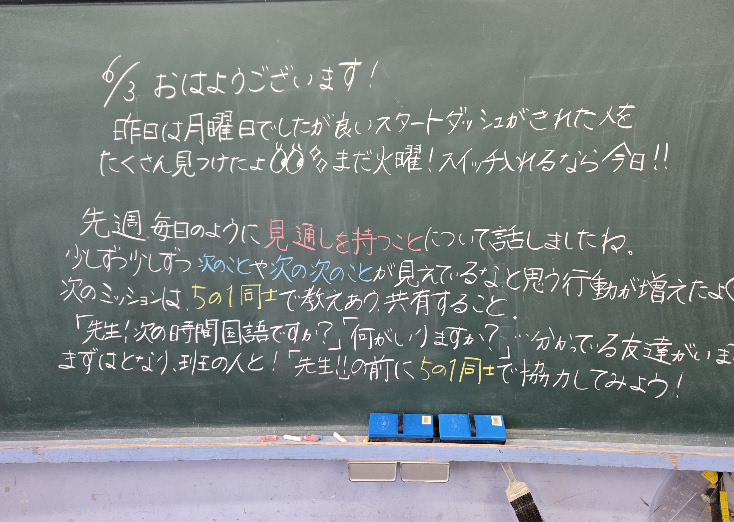 6/3 おはようございます!
昨日は月曜日でしたが良いスタートダッシュがきれた人を
たくさん見つけたよ まだ火曜!スイッチ入れるなら今日!!
先週、毎日のように見通しを持つことについて話しましたね。
少しずつ少しずつ次のことや次の次のことが見えているな、と思う行動が増えたよ
次のミッションは、5の1同士で教えあう、共有すること。
「先生!次の時間国語ですか?」「何がいりますか?」…分かっている友達がいま
まずはとなり、班の人と!「先生!!」の前に5の1同士で協力してみよう!